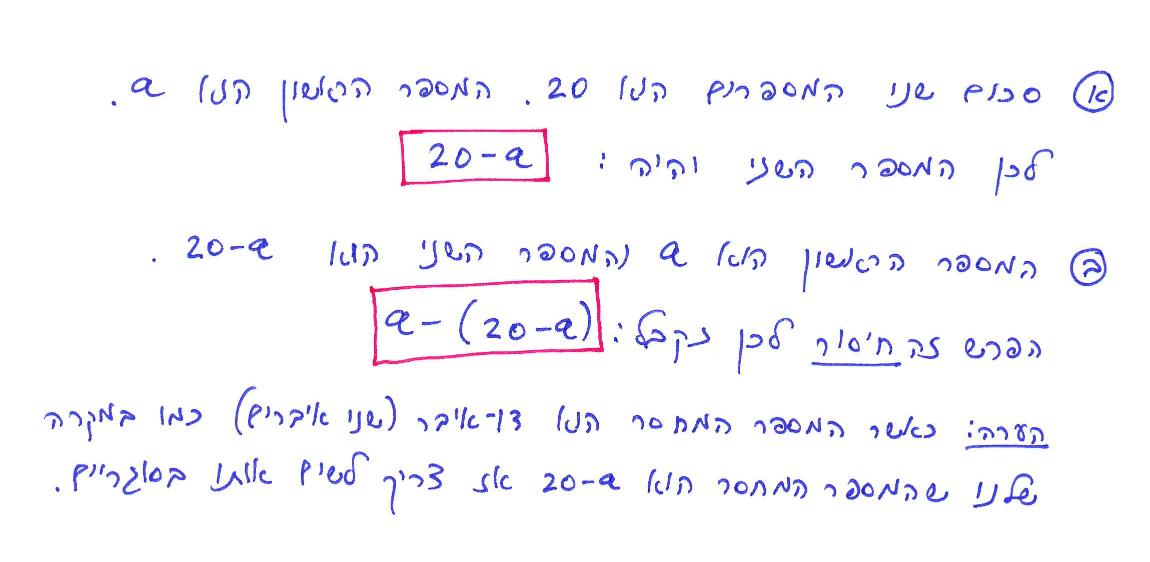 א סכום שני המספרים הוא 20. המספר הראשון הוא a.
לכן המספר השני יהיה: 20-a
ב המספר הראשון הוא a והמספר השני הוא 20-a.
הפרש זה חיסור לכן נקבל: a-(20-a)
הערה: כאשר המספר המחסר הוא דו-איבר (שני איברים) כמו במקרה
שלנו שהמספר המחסר הוא 20-a אז צריך לשים אותו בסוגריים.